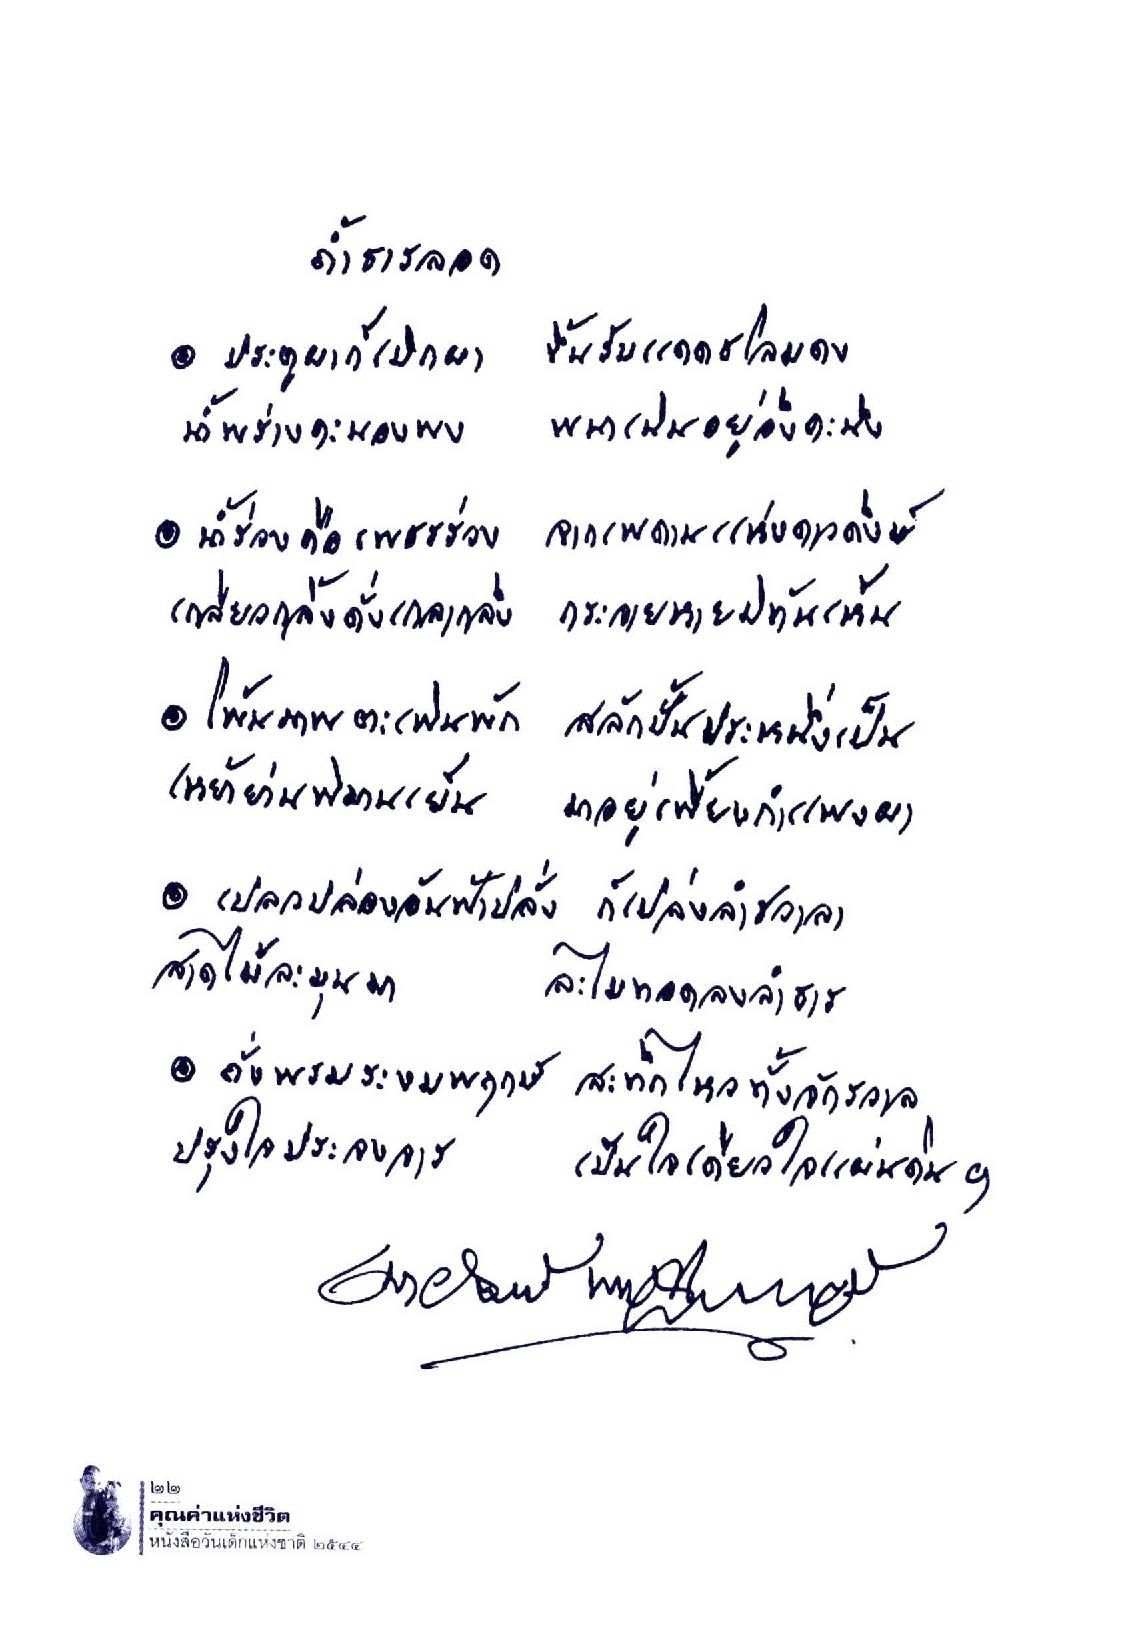 ถ้ำธารลอด
๏ ประตูผาก็เปิดผา ขึ้นรับแดดชโลมดง
น้ำพร่างตะนองพง พนาเป็นอยู่อึงคะนึง
๏ น้ำร่วงคือเพชรร่วง จากเพดานแห่งดาวดึงษ์
เกลียวกลิ้งดั่งเกลากลึง กระจายหายไปทันเห็น
๏ โพ้นภาพตะเพิ่นพัก สลักปั้นประหนึ่งเป็น
เหย้าย่านพิมานเย็น มาอยู่เพี้ยงกำแพงผา
๏ เปลวปล่องอันฟ้าปลั่ง ก็เปล่งลำชวาลา
สาดไม้ละมุนมา ละไมทอดลงลำธาร
๏ ดั่งพรมระงมพฤกษ์ สะทึกไหวทั้งจักรวาล
ปรุงใจประจงจาร เป็นใจเดียวใจแผ่นดิน ๆ
เนาวรัตน์ พงษ์ไพบูลย์
๒๒
คุณค่าแห่งชีวิต
หนังสือวันเด็กแห่งชาติ ๒๕๔๔